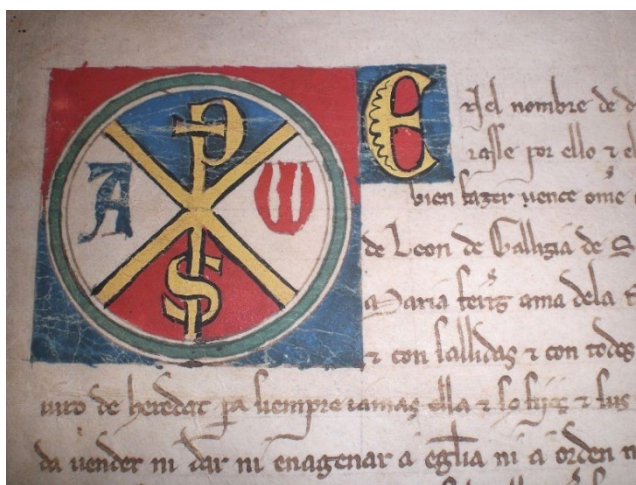 A W
E
n el nombre de d
rasse por ello τ el
bien fazer uence ome
de Leon de Gallizia de S
Maria ferrs ama dela
τ con sallidas τ con todos
uiro de heredat pa siempre iamas ella τ sos fijos τ sus
da uender ni dar ni enagenar a eglia ni a orden n